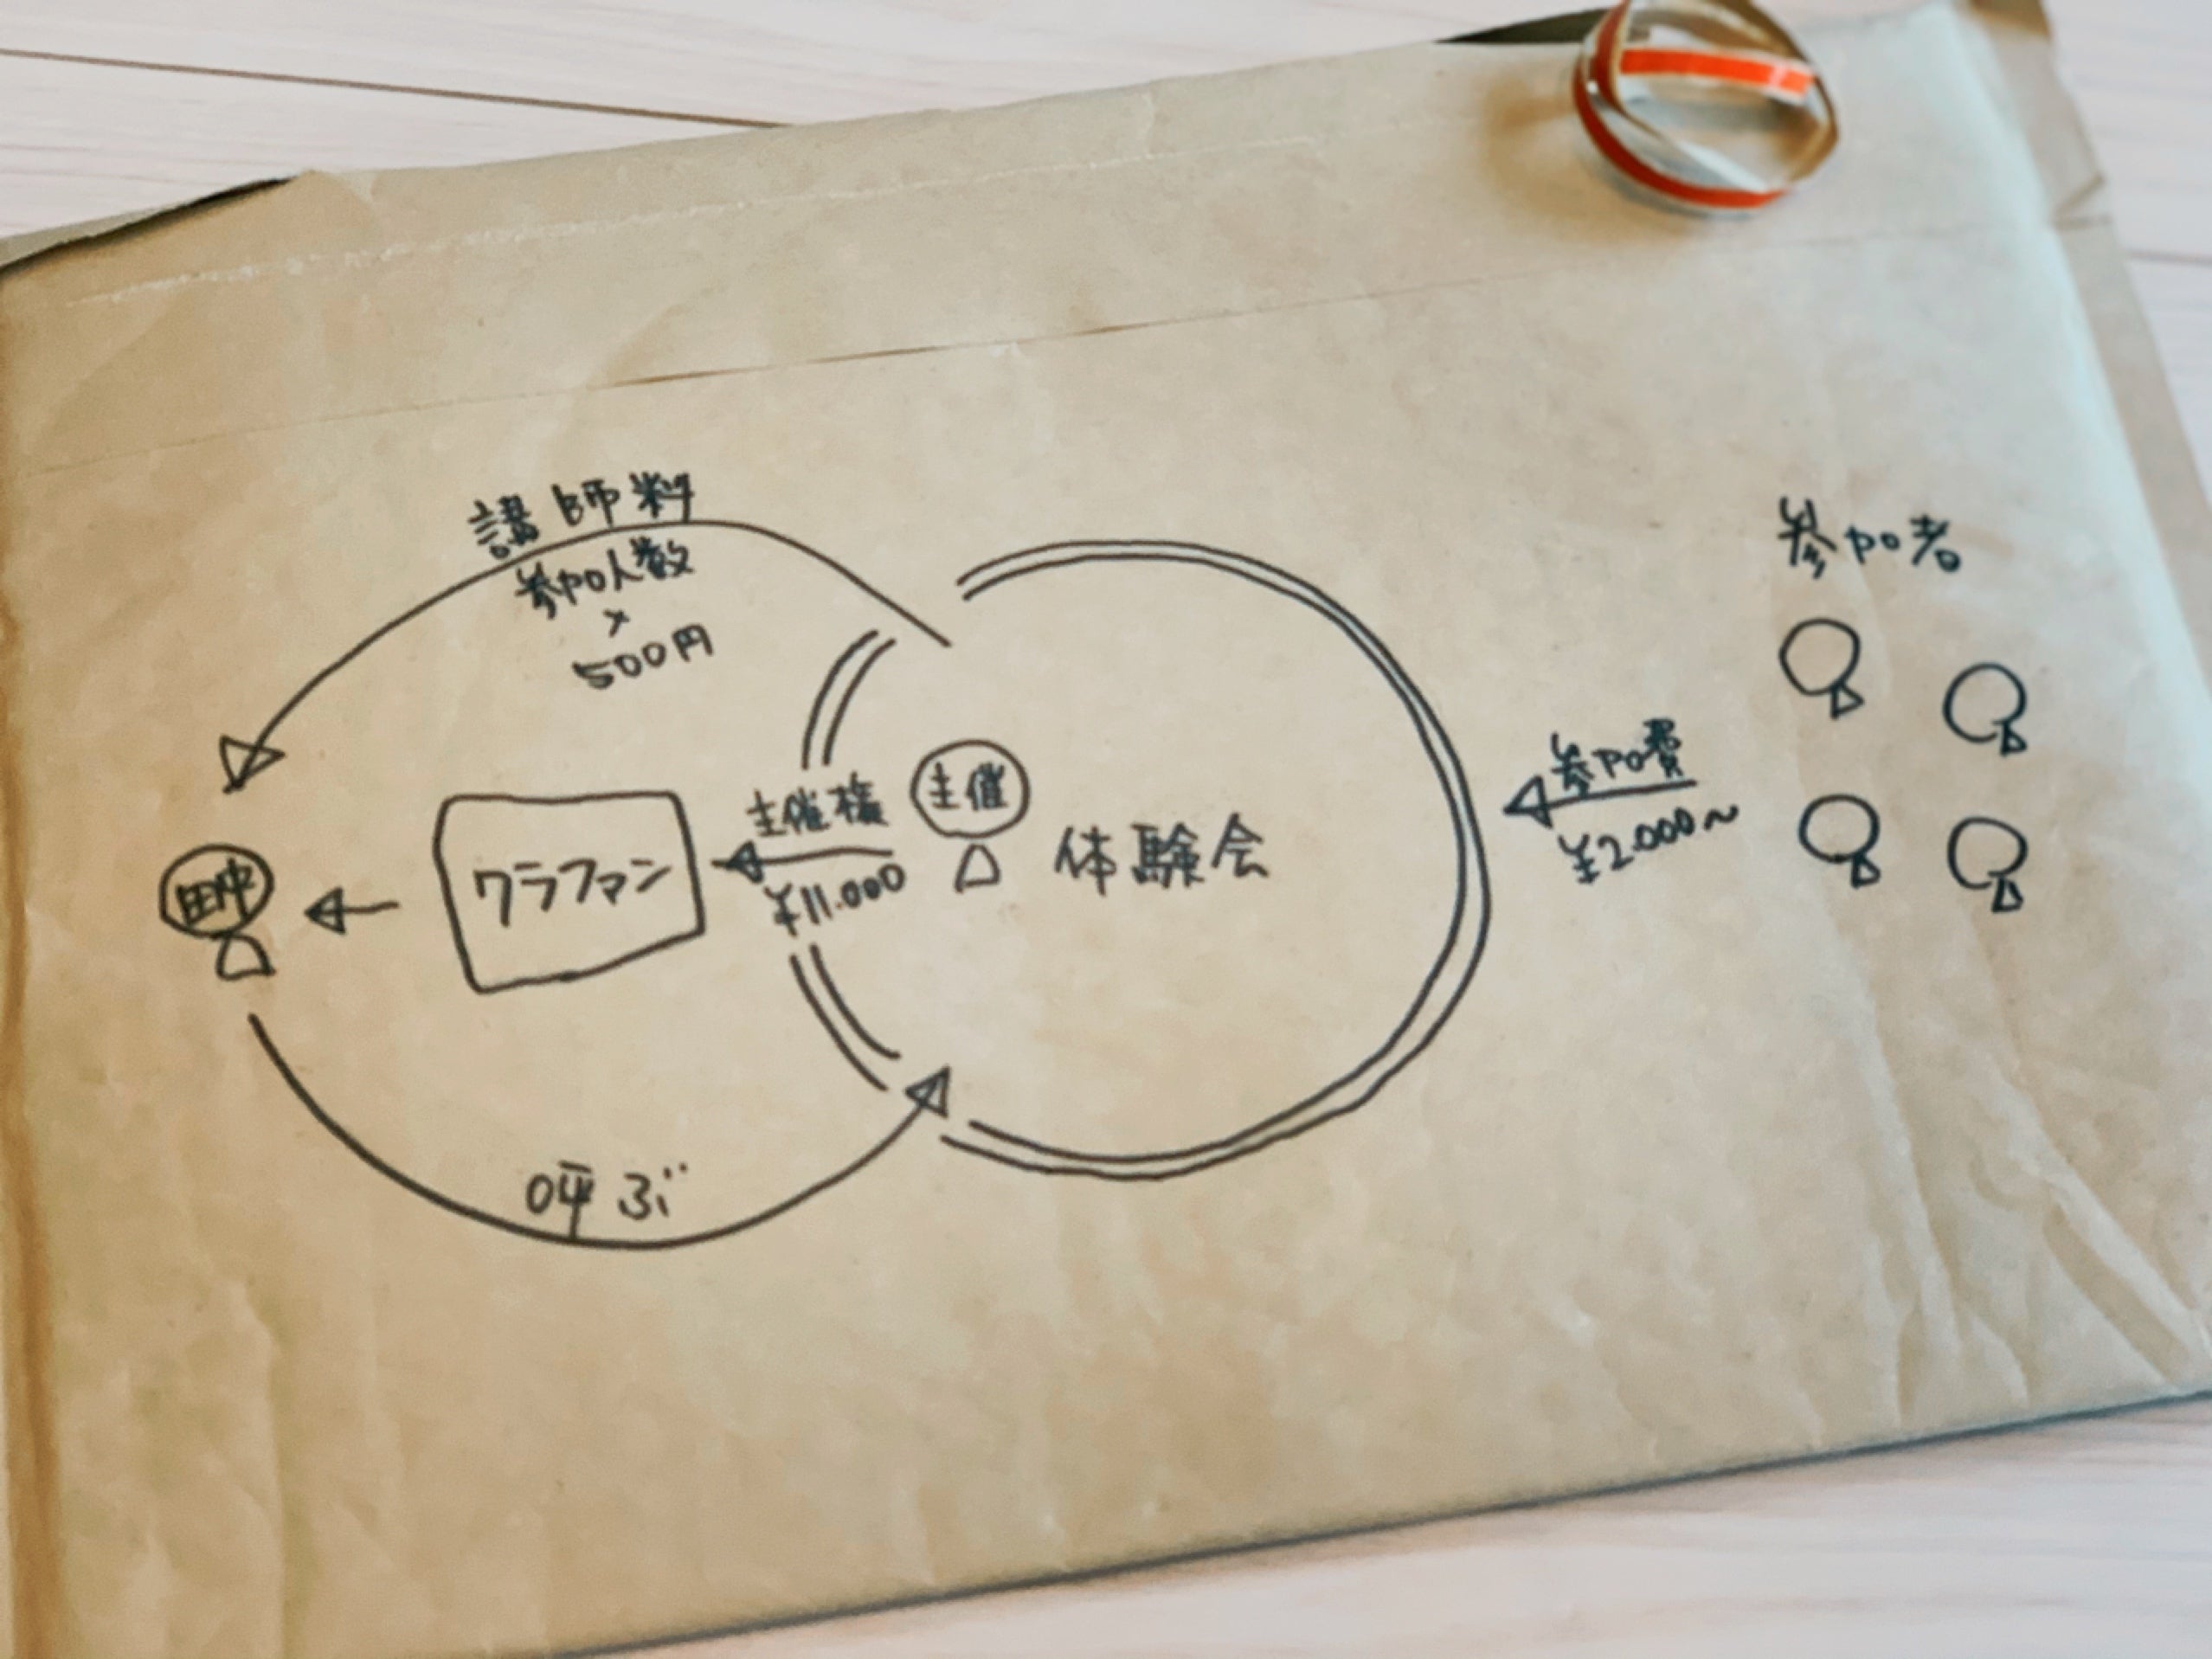 講師料
参加人数
×
500円
参加者
参加費
¥2.000〜
主催権
¥11.000
主催
体験会
クラファン
田中
呼ぶ